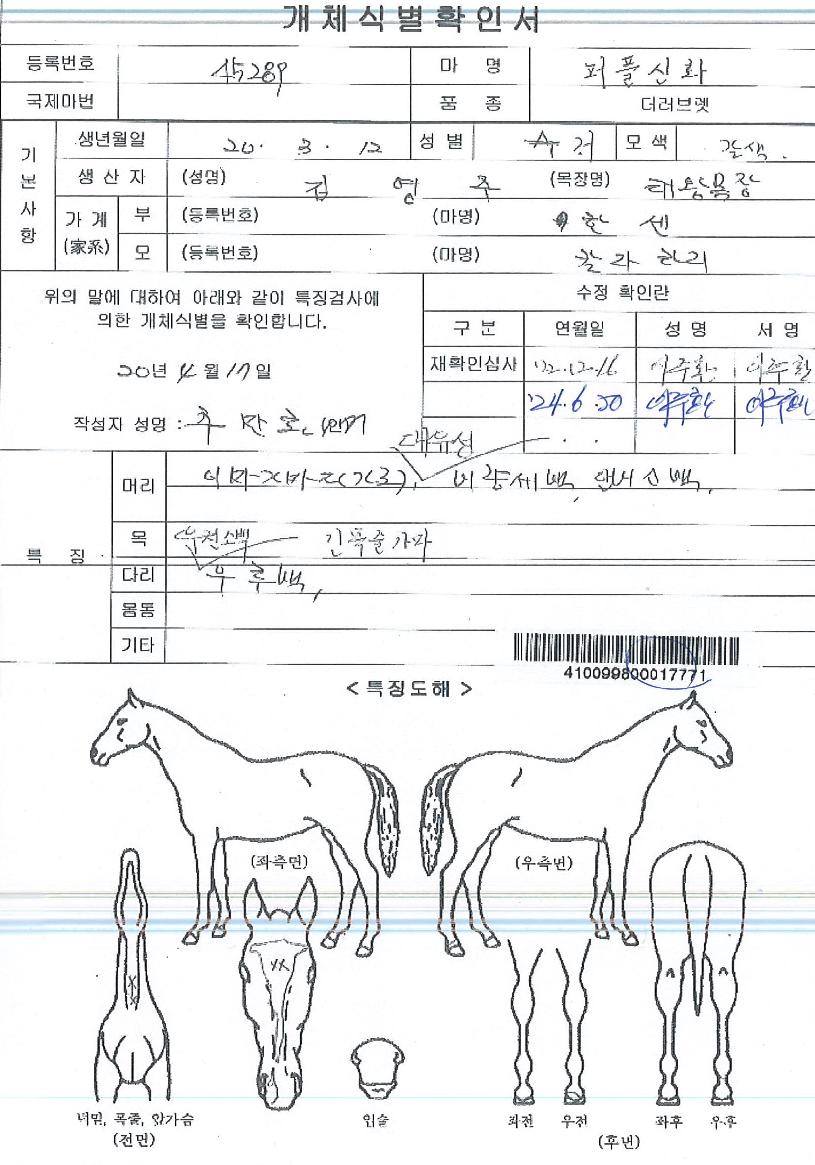 개체식별확인서
등록번호 45289 마 명 퍼플신화
국제마번 품 종 더러브렛
기본사항
생년월일 20. 3. 12 성별 수 거 모색 갈색.
생산자 (성명) 김 영 주 (목장명) 태왕목장
가계 (家系) 부 (등록번호) (마명) 한 센
모 (등록번호) (마명)
위의 말에 대하여 아래와 같이 특징검사에
의한 개체식별을 확인합니다.
20년 4월 17일
작성자 성명 :
수정 확인란
구 분 연월일 성 명 서 명
재확인심사 '22.12.16 이주환 이주환
'24.6.20 이주환 이주환
대유성
특 징
머리 비량세백,
목 우전소백 긴목줄가마
다리 우후백,
몸통
기타
410099800017771
< 특징도해 >
(좌측면) (우측면)
너밑, 목줄, 앞가슴
(전면)
입술
좌전 우전 좌후 우후
(후면)